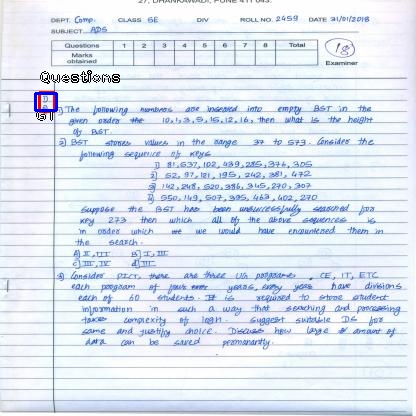 27, DHANKAWADI, PUNE 411 043.
DEPT. Comp. CLASS SE DIV ROLL NO. 2459 DATE 31/01/2018
SUBJECT ADS
Questions 1 2 3 4 5 6 7 8 Total
Marks obtained
18
Examiner
Questions
1)
1) The following numbers are inserted into empty BST in the
given order the 10,1,3,5,15,12,16, then what is the height
of BST.
2) BST stores values in the range 37 to 573. Consider the
following sequence of keys
1) 81,537,102,439,285,376,305
2) 52, 97, 121, 195, 242, 381, 472
3) 142, 248, 520, 386, 345, 270, 307
4) 550, 149, 507, 395, 463, 402, 270
Suppose the BST has been unsuccessfully searched for
key 273 then which all of the above sequences is
in order which we would have encountered them in
the search.
A) II, III B) I, III
C) III, IV d) III
3) Consider PICT, there are three UG programs, CE, IT, ETC
each program of four years, every year have divisions
each of 60 students. It is required to store student
information in such a way that searching and processing
takes complexity of logn. Suggest suitable DS for
same and justify choice. Discuss how large amount of
data can be saved permanantly.